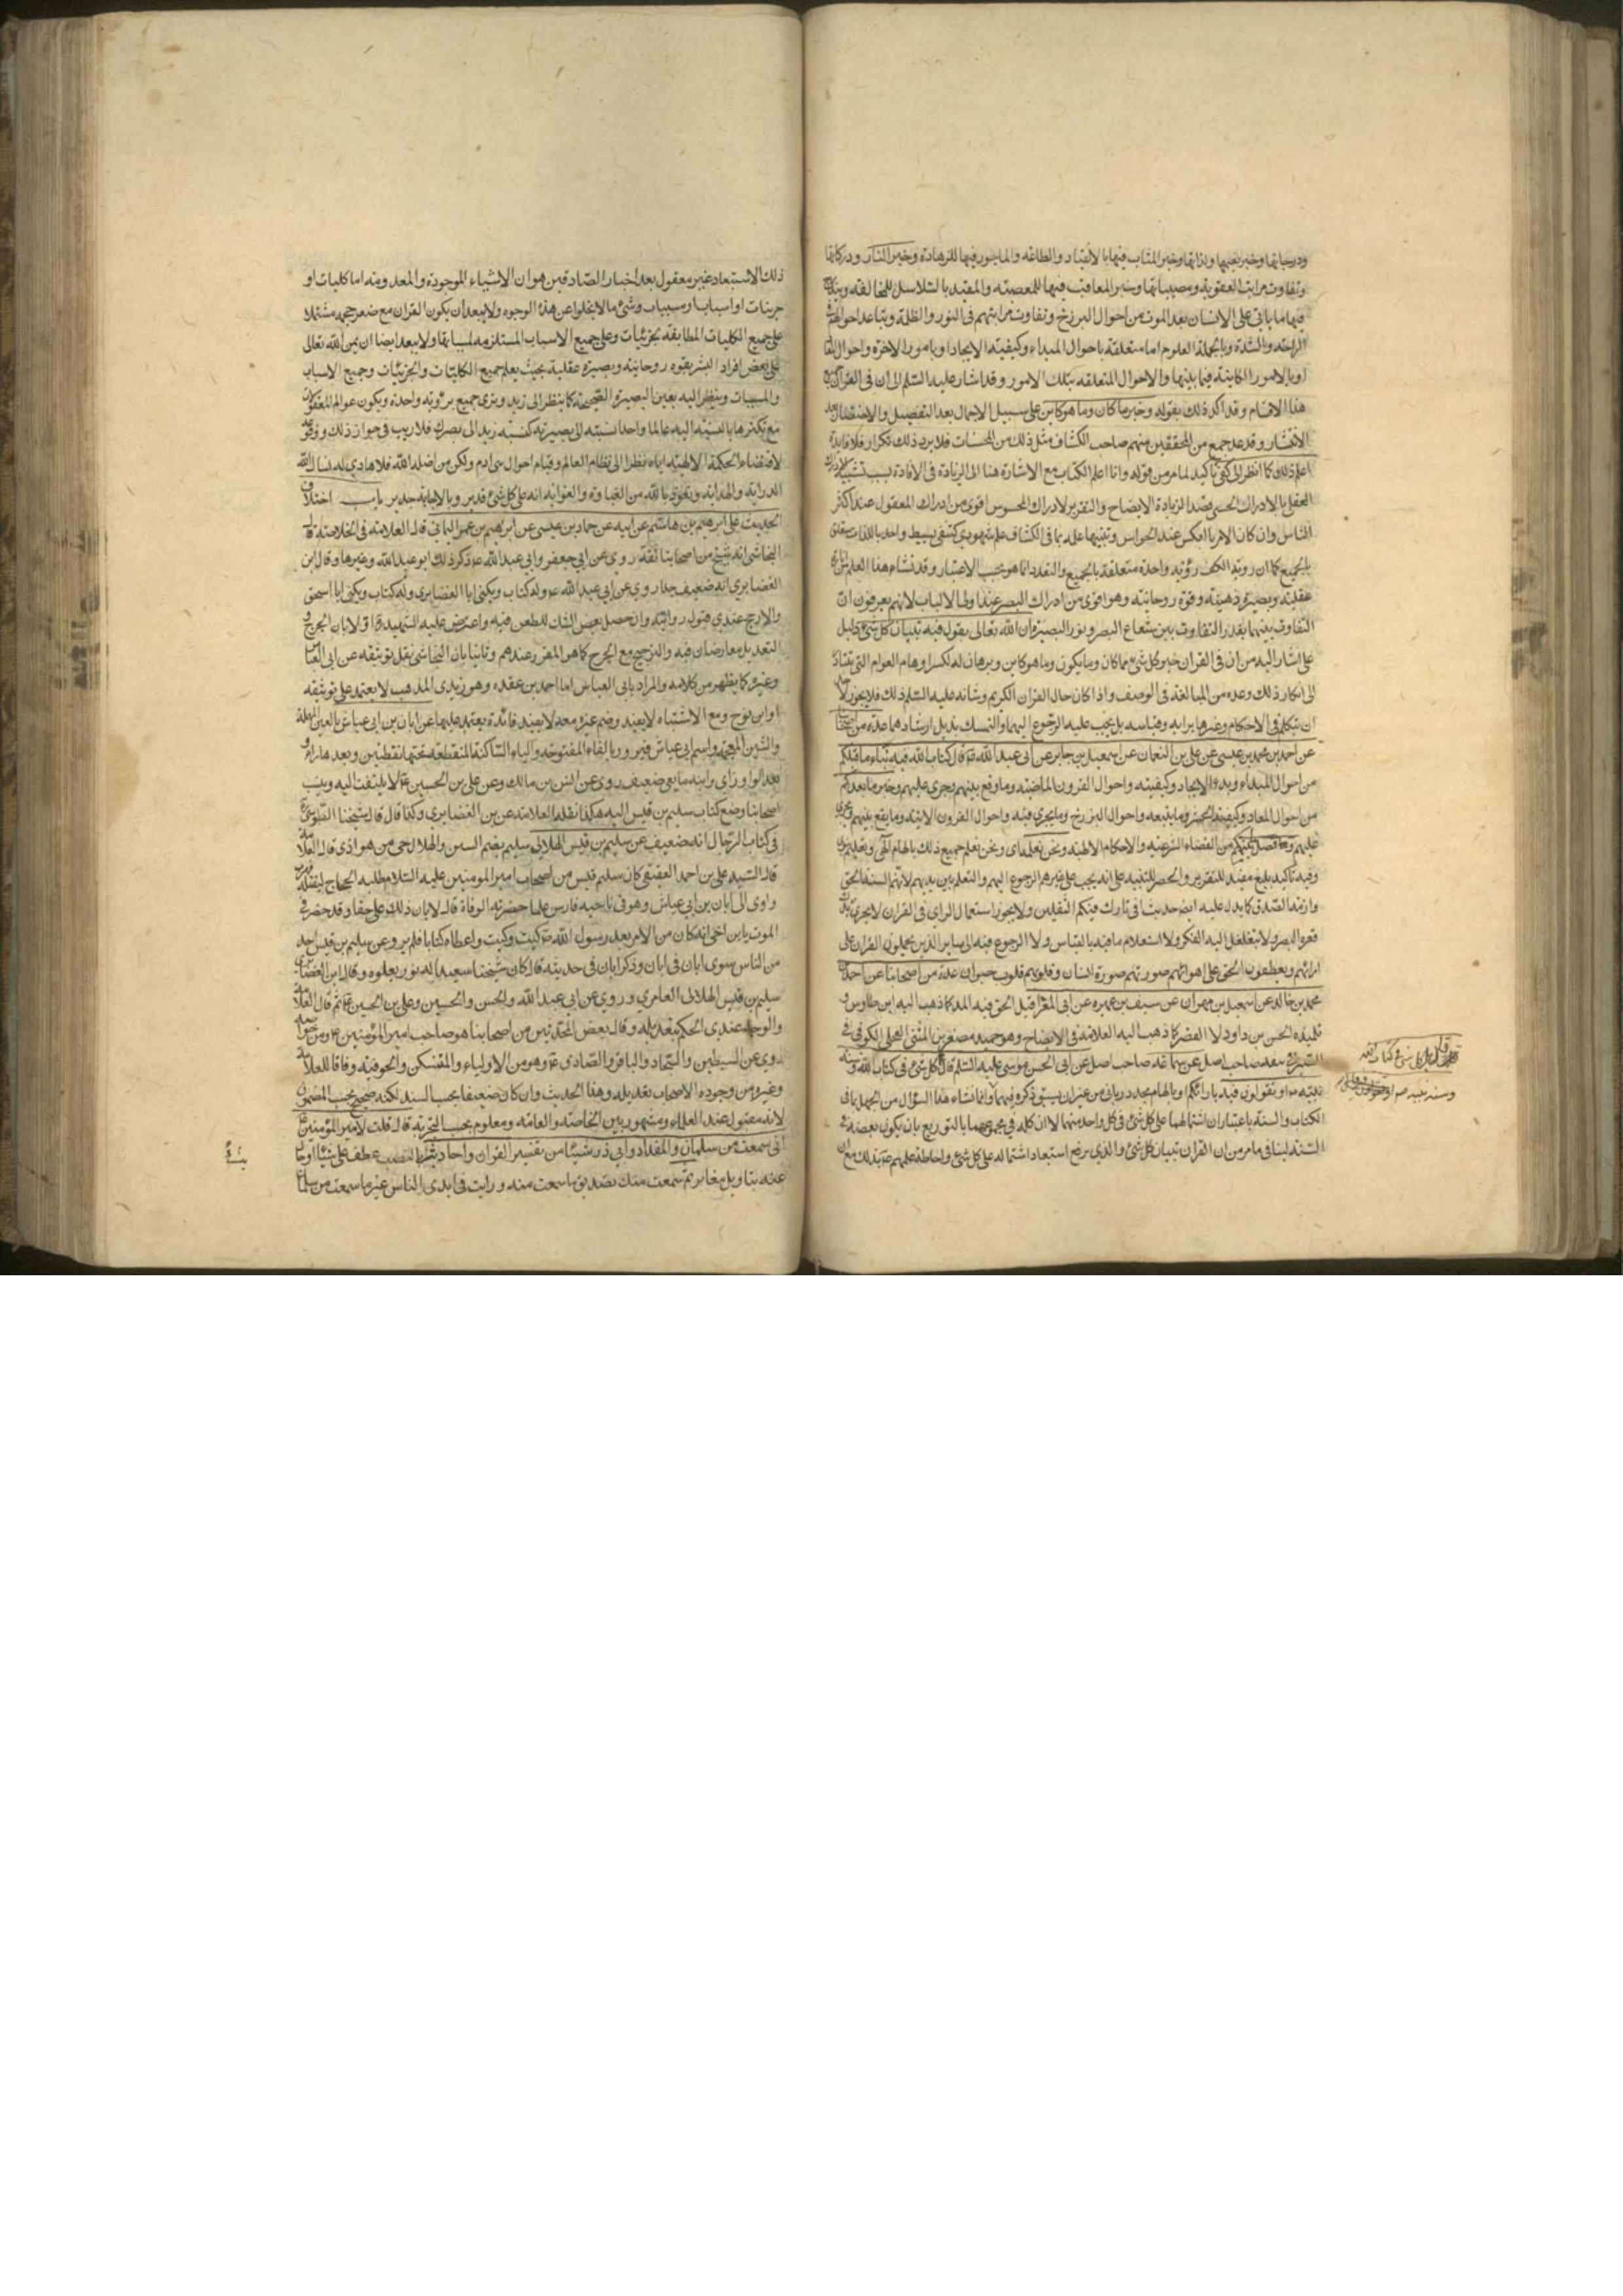 ودرجاتها وخبر نعيمها ولذاتها وخبر المثاب فيها بالانقياد والطاعة والماجور فيها للزهادة وخبر النار ودركاتها
وتفاوت مراتب العقوبة ومصيباتها وخبر المعاقب فيها للمعصية والمقيد بالسلاسل للمخالفة
فيها ما ياتى على الانسان بعد الموت من احوال البرزخ وتفاوت مراتبهم فى النور والظلمة وتباعد احوالهم فى
الراحة والشدة وبالجملة العلوم اما متعلقة باحوال المبداء وكيفية الايجاد او بامور الاخرة واحوال
او بالامور الكاينة فيما بينها والاحوال المتعلقة بتلك الامور وقد اشار عليه السلم الى ان فى القران
هذا الاقسام وقد اكد ذلك بقوله وخبر ما كان وما هو كاين على سبيل الاجمال بعد التفصيل والاختصار بعد
الانتشار وقد عد جمع من المحققين منهم صاحب الكشاف مثل ذلك من المحسنات فلا يرد ذلك تكرار فلا فايدة
اعلم ذلك كما انظر الى كفى تاكيد لما مر من قوله وانا اعلم الكتاب مع الاشارة هنا الى الزيادة فى الافادة بسبب تشبيه الادراك
العقلى بالادراك الحسى قصدا لزيادة الايضاح والتقرير لادراك المحسوس اقوى من ادراك المعقول عند اكثر
الناس وان كان الامر بالعكس عند الخواس وتنبيها على ان علمه بما فى الكتاب علم شهودى كشفى بسيط واحد بالذات متعلق
بالجميع كما ان روية الكف رؤية واحدة متعلقة بالجميع والتعدد انما هو بحسب الاعتبار وقد نشاء هذا العلم من
عقلية وبصيرة ذهنية وقوة روحانية وهو اقوى من ادراك البصر عند اولى الالباب لانهم يعرفون ان
التفاوت بينهما بقدر التفاوت بين شعاع البصر ونور البصيرة ان الله تعالى يقول فيه تبيان كل شئ دليل
على اشار اليه من ان فى القران خبر كل شئ مما كان وما يكون وما هو كاين وبرهان له لكسر اوهام العوام التى تتبادر
الى انكار ذلك وعده من المبالغة فى الوصف واذا كان حال القران الكريم وشانه عليه السلم ذلك فلا يجوز لاحد
ان يتكلم فى الاحكام وغيرها برايه وقياسه بل يجب عليه الرجوع اليهما والتمسك بذيل ارشادهما عدة من اصحابنا
عن احمد بن محمد بن عيسى عن على بن النعمان عن اسمعيل بن جابر عن ابى عبد الله ع قال كتاب الله فيه نباء ما قبلكم
من احوال المبداء وبدء الايجاد وكيفيته واحوال القرون الماضية وما وقع بينهم وجرى عليهم وخبر ما بعدكم
من احوال المعاد وكيفية الحشر وما يتبعه واحوال البرزخ وما يجرى فيه واحوال القرون الاتية وما يقع بينهم ويجرى
عليهم وفصل ما بينكم من القضاء الشرعيه والاحكام الالهية ونحن نعلمه اى ونحن نعلم جميع ذلك بالهام الهى وتعليم نبوى
وفيه تاكيد بليغ مفيد للتقرير والحصر للتنبيه على انه يجب على غيرهم الرجوع اليهم والتعلم بين يديهم لانهم السند الحق
وازمة الصدق كما يدل عليه ايضا حديث انى تارك فيكم الثقلين ولا يجوز استعمال الراى فى القران لا يجرى
قعره البصر ولا يتغلغل اليه الفكر ولا استعلام ما فيه بالقياس ولا الرجوع فيه الى ساير الذين يحملون القران على
ارائهم ويعطفون الحق على اهوائهم صورتهم صورة انسان وقلوبهم قلوب حيوان عدة من اصحابنا عن احمد بن
محمد بن خالد عن اسمعيل بن مهران عن سيف بن عميرة عن ابى المغرا قيل الحق فيه المد كما ذهب اليه ابن طاوس و
تلميذه الحسن بن داود لا القصر كما ذهب اليه العلامة فى الايضاح وهو حميد مصغر بن المثنى العجلى الكوفى
الصيرفى بعد صاحب اصل عن سماعة صاحب اصل عن ابى الحسن موسى عليه السلم قال اكل شئ فى كتاب الله وسنة
نبيه ص او تقولون فيه بارائكم او بالهام مجدد ربانى من غير ان يسبق ذكره فيهما وانما نشاء هذا السؤال من الجهل بما فى
الكتاب والسنة باعتبار ان اشتمالهما على كل شئ فى كل واحد منهما لا ان كله فى مجموعهما بالتوزيع بان يكون بعضه فى
السنة لينافى ما مر من ان القران تبيان كل شئ والذى يرفع استبعاد اشتماله على كل شئ واحاطة علمهم ع بذلك مع ان
قال بل كل شئ فى كتاب الله
وسنة نبيه ص
ذلك الاستبعاد غير معقول بعد اخبار الصادقين هو ان الاشياء الموجودة والمعدومة اما كليات او
جزئيات او اسبابا ومسببات وشئ ما لا يخلوا عن هذه الوجوه ولا يبعد ان يكون القران مع صغر حجمه مشتملا
على جميع الكليات المطابقة لجزئيات وعلى جميع الاسباب المستلزمة لمسبباتها ولا يبعد ايضا ان يمن الله تعالى
على بعض افراد البشر بقوة روحانية وبصيرة عقلية بحيث يعلم جميع الكليات والجزئيات وجميع الاسباب
والمسببات وينظر اليه بعين البصيرة الصحيحة كما ينظر الى زيد ويرى جميع برؤية واحدة ويكون عوالم المعقولات
مع تكثرها بالنسبة اليه عالما واحدا نسبته الى بصيرته كنسبة زيد الى بصرك فلا ريب فى جواز ذلك ووقوعه
لاقتضاء الحكمة الالهية اياه نظرا الى نظام العالم وقيام احوال بنى ادم ولكن من اضله الله فلا هادى له نسال الله
الدراية والهداية ونعوذ بالله من الغباوة والغواية انه على كل شئ قدير وبالاجابة جدير باب اختلاف
الحديث على بن ابرهيم بن هاشم عن ابيه عن حماد بن عيسى عن ابرهيم بن عمر اليمانى قال العلامة فى الخلاصة قال
النجاشى انه شيخ من اصحابنا ثقة روى عن ابى جعفر وابى عبد الله ع ذكر ذلك ابو عبد الله وغيرها وقال ابن
الغضايرى انه ضعيف جدا روى عن ابى عبد الله ع وله كتاب ويكنى ابا اسحق
والارجح عندى قبول روايته وان حصل بعض الشك للطعن فيه واعترض عليه الشهيد ره اولا بان الجرح و
التعديل معارضان فيه والترجيح مع الجرح كما هو المقرر عندهم وثانيا بان النجاشى نقل توثيقه عن ابى العباس
وغيره كما يظهر من كلامه والمراد بابى العباس اما احمد بن عقده وهو زيدى المذهب لا يعتمد على توثيقه
او ابن نوح ومع الاشتباه لا يفيد وضم غيره معه لا يفيد فائدة يعتمد عليها عن ابان بن ابى عياش بالعين المهملة
والشين المعجمة واسم ابى عياش فيروز بالفاء المفتوحة والياء الساكنة المنقطة تحتها نقطتين وبعدها راء و
بعد الواو زاى وابنه تابعى ضعيف روى عن انس بن مالك وعن على بن الحسين ع لا يلتفت اليه وينسب
اصحابنا وضع كتاب سليم بن قيس اليه هكذا نقله العلامة عن بن الغضايرى وكذا قال قال شيخنا الطوسى ره
فى كتاب الرجال انه ضعيف عن سليم بن قيس الهلالى سليم بضم السين والهلال حى من هوازن قال العلامة
قال السيد على بن احمد العقيقى كان سليم قيس من اصحاب امير المومنين عليه السلام طلبه الحجاج ليقتله فهرب
واوى الى ابان بن ابى عياش وهو فى ناحيه فارس فلما حضرته الوفاة قال لابان ذلك على حقا وقد حضرنى
الموت يابن اخى انه كان من الامر بعد رسول الله ص كيت وكيت واعطاه كتابا فلم يرو عن سليم بن قيس احد
من الناس سوى ابان فى ابان وذكر ابان فى حديثه قال كان شيخنا سعيدا له نور يعلوه وقال ابن الغضايرى
سليم بن قيس الهلالى العامرى وروى عن ابى عبد الله والحسن والحسين وعلى بن الحسين ع ثم قال العلامة
والوجه عندى الحكم بتعديله وقال بعض المحدثين من اصحابنا هو صاحب امير المؤمنين ع ومن خواصه
روى عن السبطين والسجاد والباقر والصادق ع وهو من الاولياء والمتنسكين والحق فيه وفاقا للعلامة
وغيره من وجوده الاصحاب تعديله وهذا الحديث وان كان ضعيفا بحسب السند لكنه صحيح بحسب المضمون
لانه مقبول عند العلماء ومشهور بين الخاصة والعامة ومعلوم بحسب التجربة قال قلت لامير المؤمنين ع
انى سمعت من سلمان والمقداد وابى ذر شيئا من تفسير القران واحاديث بالنصب عطف على شيئا او
عنه بتاويل مغاير ثم سمعت منك تصديق ما سمعت منه ورايت فى ايدى الناس غير ما سمعت من سلمان